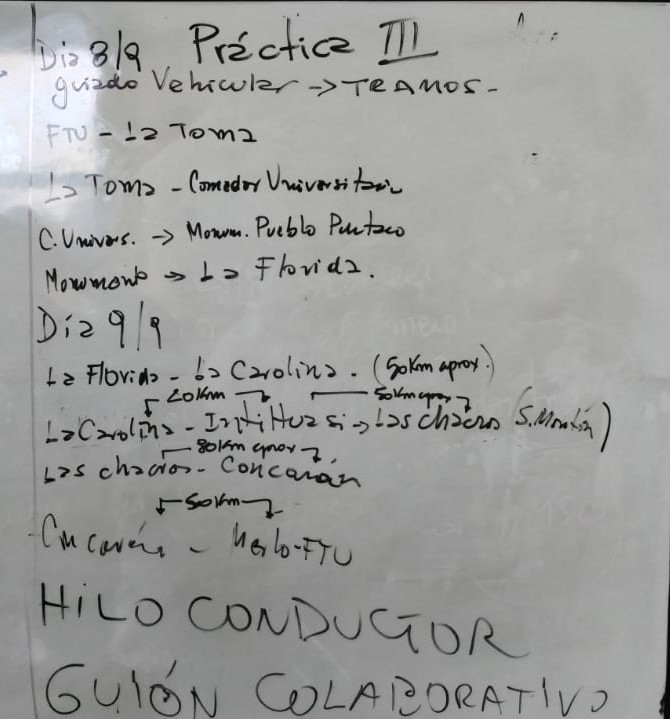 Práctica III
Día 8/9
guiado Vehicular -> TRAMOS -
FTU - La Toma
La Toma - Comedor Universitario
C. Univers. -> Monum. Pueblo Puntano
Monumento -> La Florida.
Día 9/9
La Florida - La Carolina. (50Km aprox.)
20Km 50Km aprox
La Carolina - Inti Huasi -> Las chacras (S. Martín)
80Km aprox
Las chacras - Concarán
50Km
Concarán - Merlo-FTU
HILO CONDUCTOR
GUIÓN COLABORATIVO